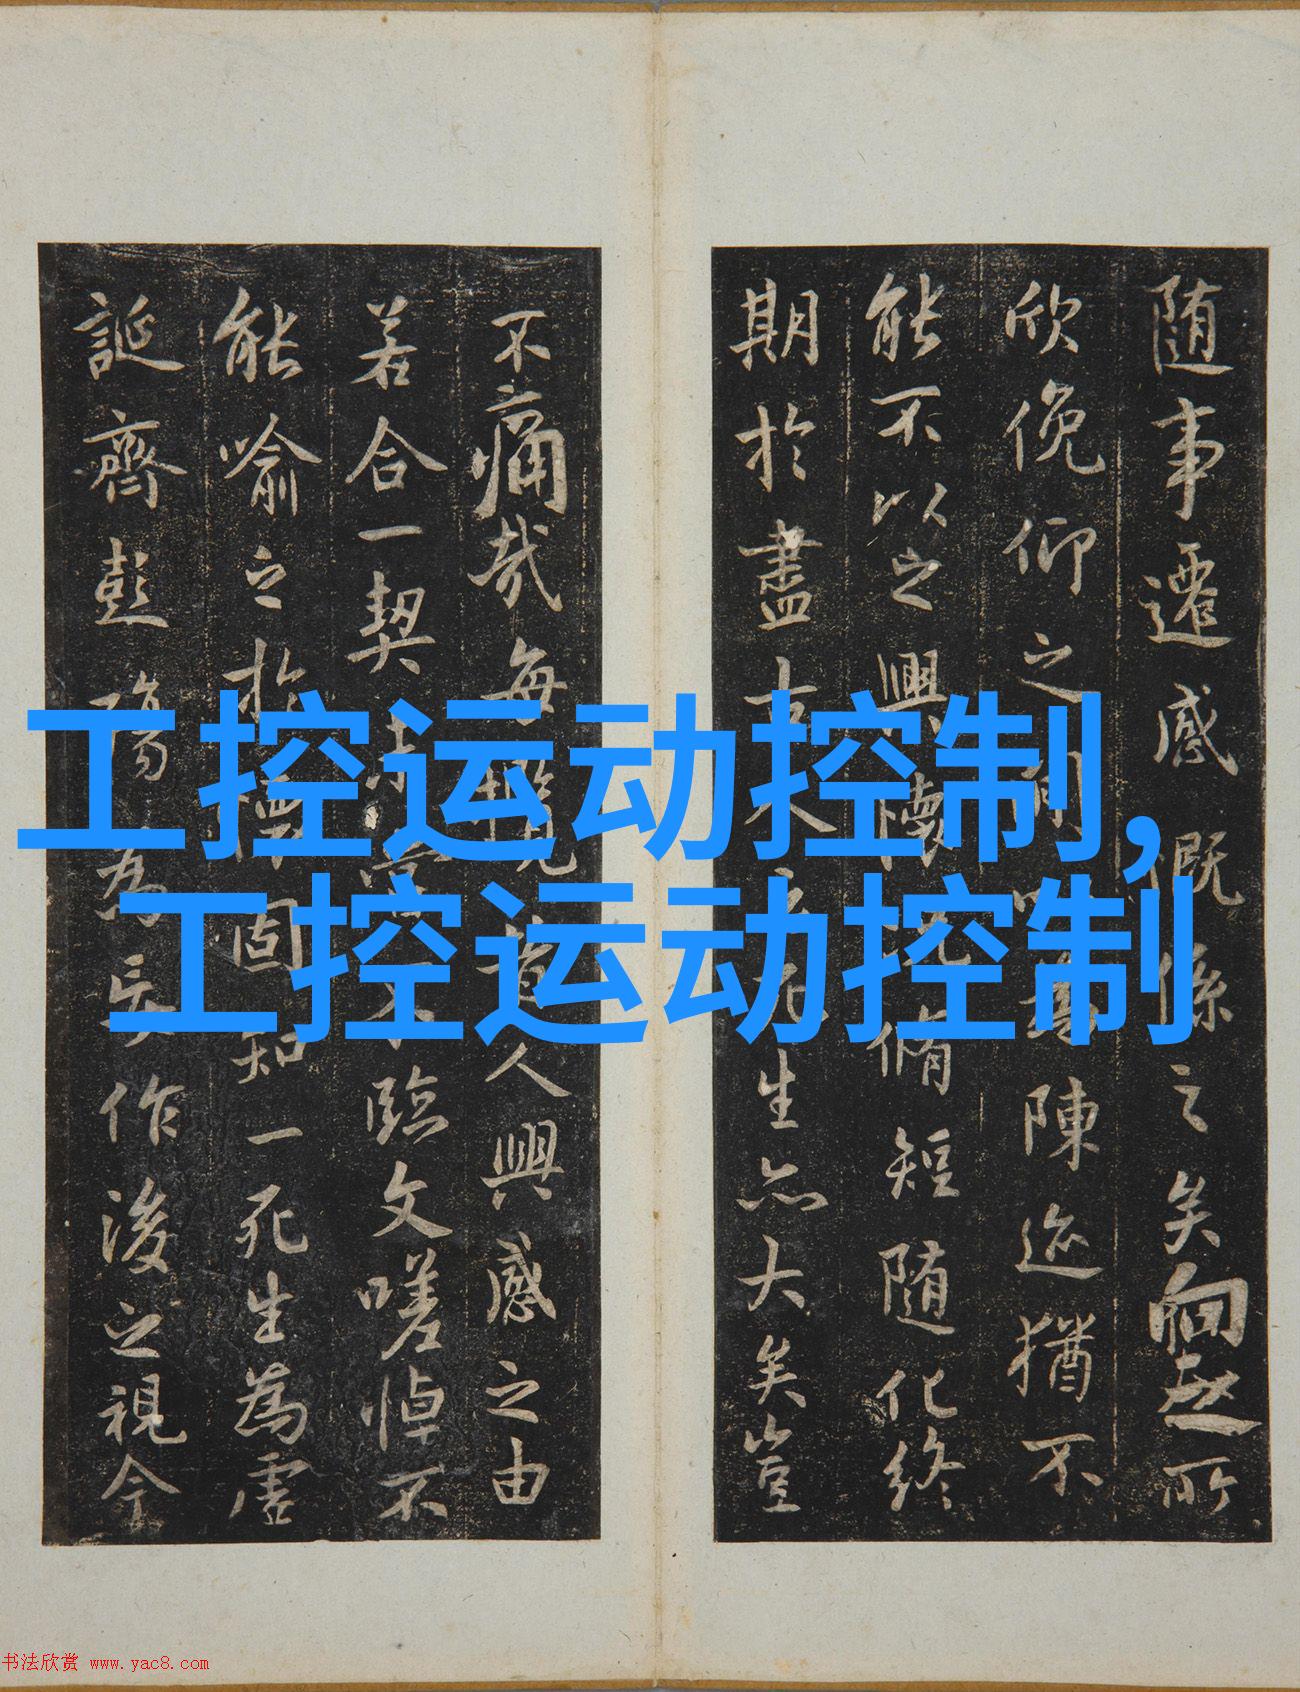 工控运动控制,
工控运动控制
随事遷感慨係之矣向之所
欣俛仰之間以為陳迹猶不
能不以之興懷況脩短隨化終
期於盡古人云死生亦大矣豈
不痛哉每攬昔人興感之由
若合一契未嘗不臨文嗟悼不
能喻之於懷固知一死生為虛
誕齊彭殤為妄作後之視今
书法欣赏 www.yac8.com